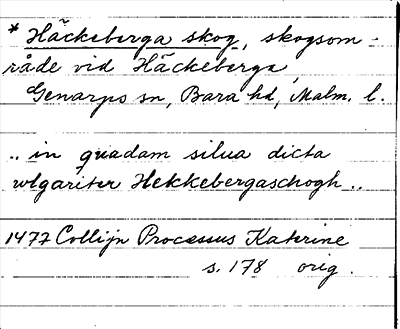 * Häckeberga skog, skogsom-
råde vid Häckeberga,
Genarps sn, Bara hd, Malm. l.
.. in quadam silua dicta
wlgariter Hekkebergaschogh ..
1477 Collijn Processus Katerine
s. 178 orig.